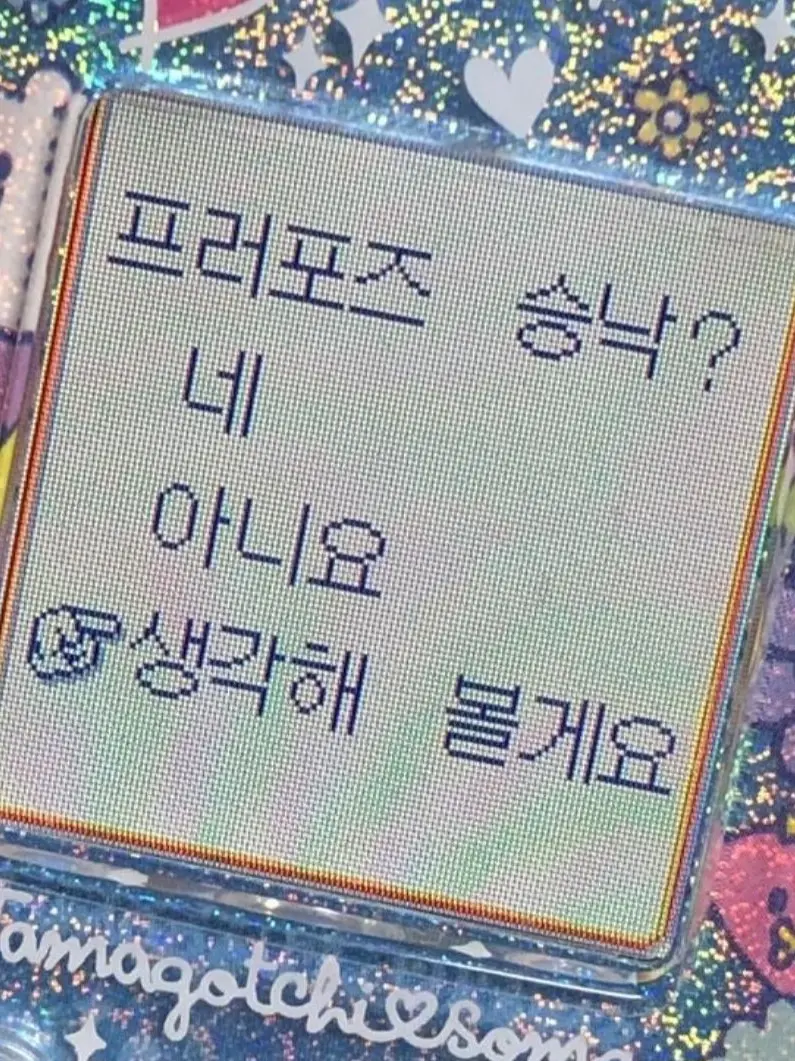 프러포즈 승낙?
네
아니요
생각해 볼게요
Tamagotchi